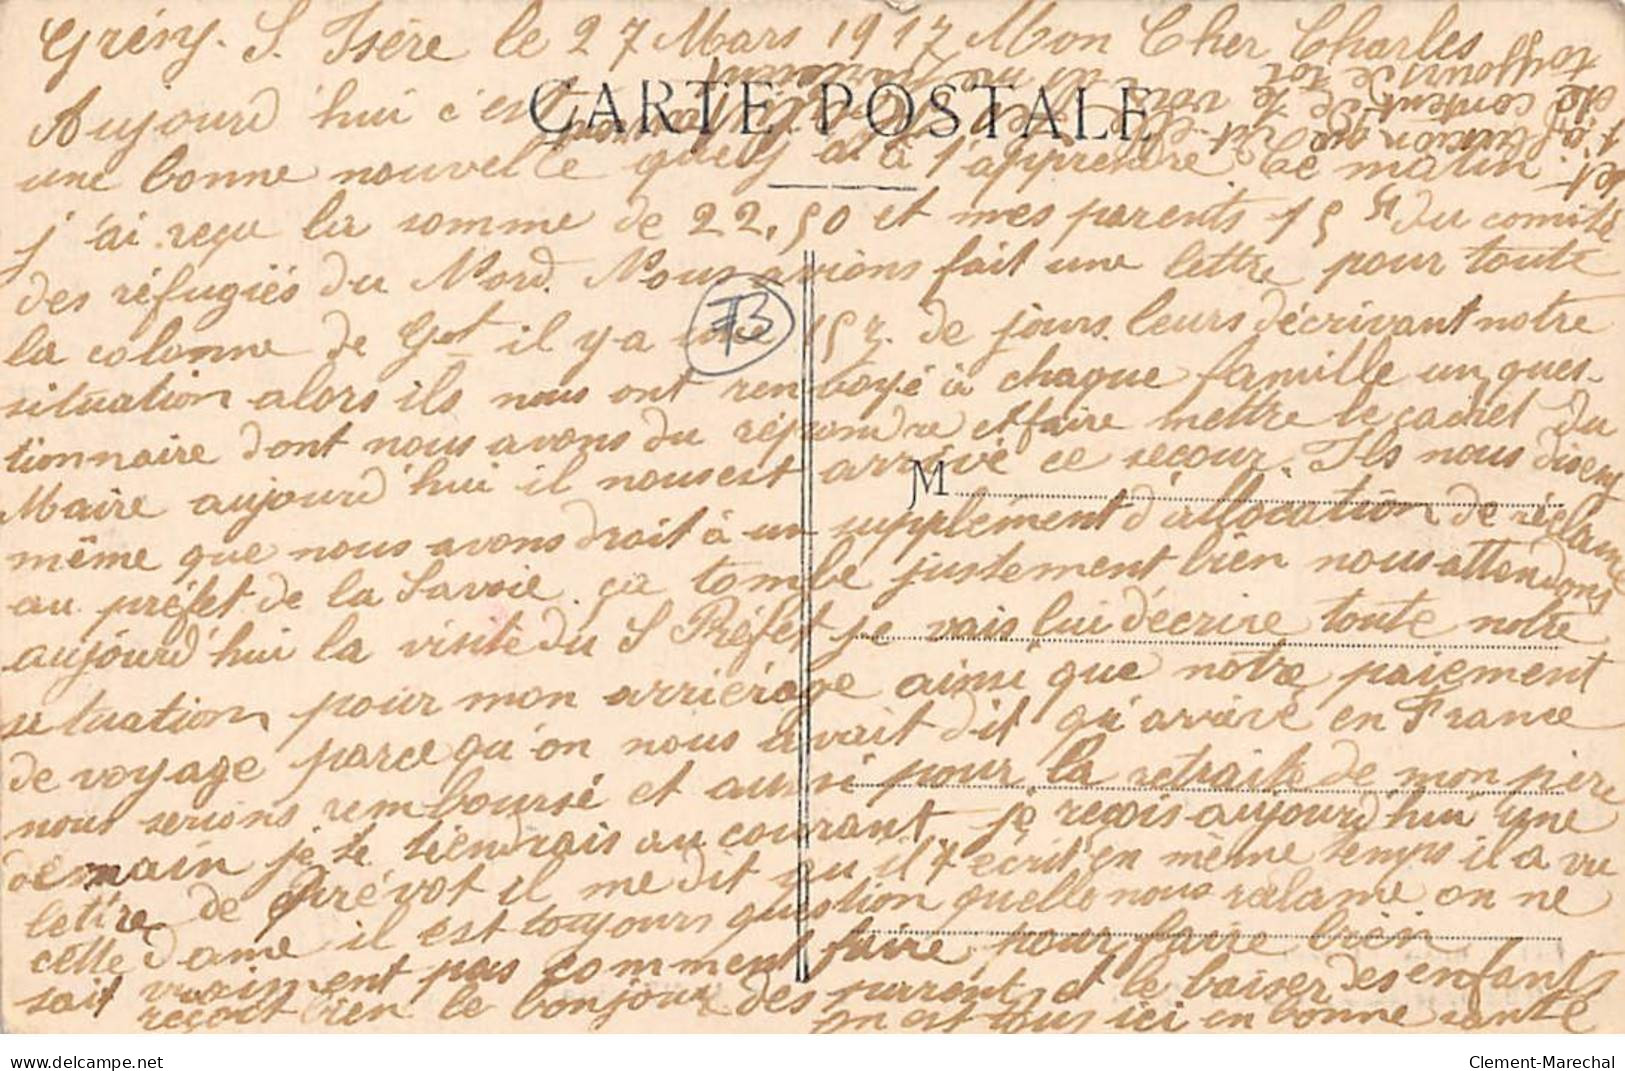 Grésy. S. Isère le 27 Mars 1917 Mon Cher Charles
CARTE POSTALE
Aujourd'hui c'est
une bonne nouvelle que j'ai à t'apprendre Ce matin
j'ai reçu la somme de 22,50 et mes parents 15 fr du comité
des réfugiés du Nord. Nous avions fait une lettre pour toute
la colonne de il y a une 15z. de jours leurs décrivant notre
situation alors ils nous ont renvoyé à chaque famille un ques-
tionnaire dont nous avons du répondre et faire mettre le cachet du
Maire aujourd'hui il nous est arrivé ce secour. Ils nous disent
même que nous avons droit à un supplément d'allocation de réclamé
au préfet de la Savoie ça tombe justement bien nous attendons
aujourd'hui la visite du S Préfet je vais lui décrire toute notre
situation pour mon arriérage ainsi que notre paiement
de voyage parce qu'on nous avait dit qu'arrivé en France
nous serions remboursé et aussi pour la retraite de mon père
demain je te tiendrais au courant. je reçois aujourd'hui une
lettre de Prévot il me dit qu'il t'écrit en même temps il a vu
cette dame il est toujours question quelle nous on ne
sait vraiment pas comment faire pour faire bien
reçoit bien le bonjour des parrent et le baiser des enfants
on est tous ici en bonne santé
toujours de toi
content de te voir
M
73
Delcampe.net
Clement-Marechal